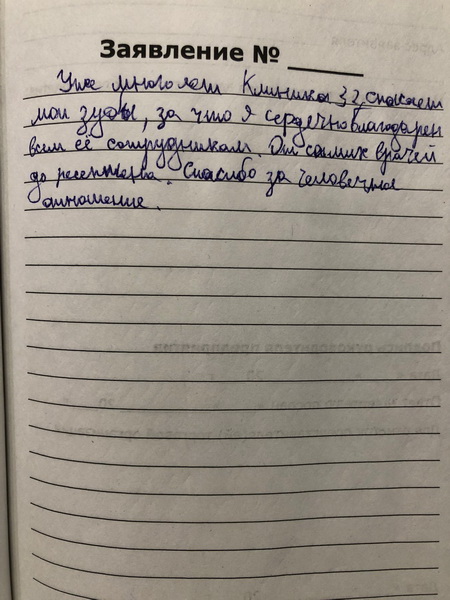 Заявление № ____
Уже много лет Клиника 32 спасает
мои зубы, за что я сердечно благодарен
всем её сотрудникам. От самих врачей
до ресепшена. Спасибо за человечное
отношение.